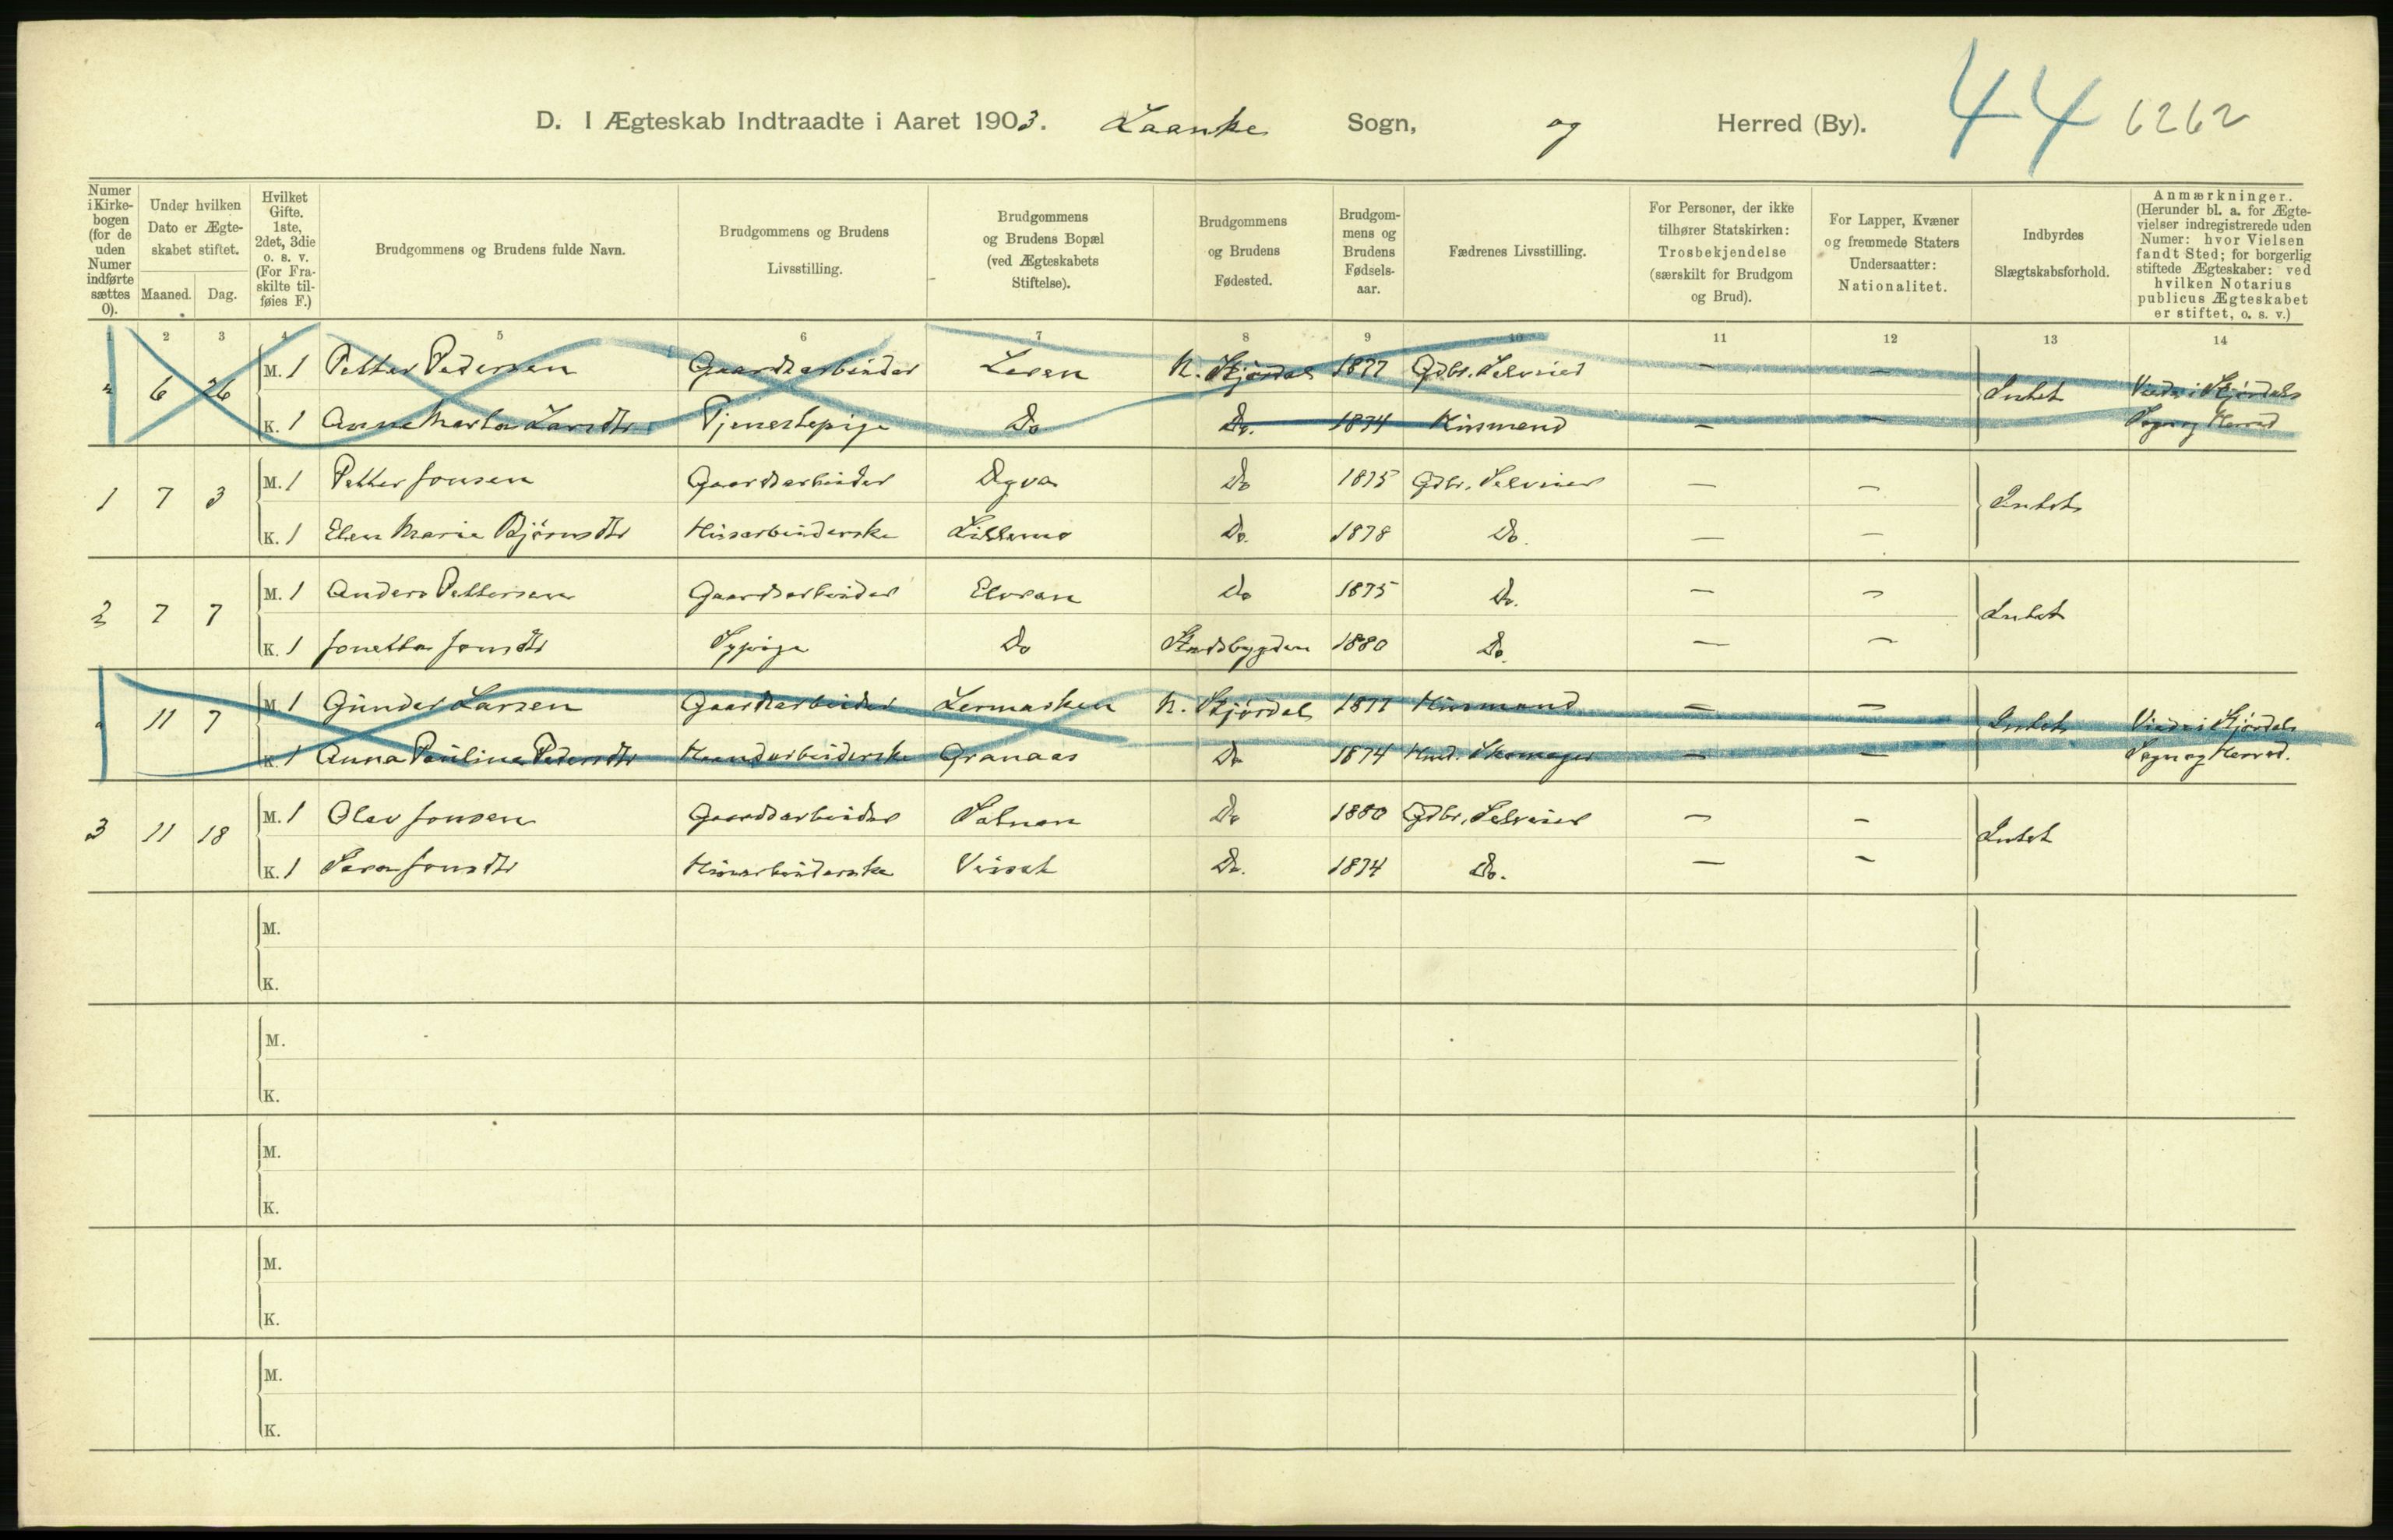 D. I Ægteskab Indtraadte i Aaret 1903. Laanke Sogn, og Herred (By). 44 6262
Numer i Kirke- bogen (for de uden Numer indførte sættes 0).
Under hvilken Dato er Ægte- skabet stiftet. Maaned. Dag.
Hvilket Gifte. 1ste, 2det, 3die o. s. v. (For Fra- skilte til- føies F.)
Brudgommens og Brudens fulde Navn.
Brudgommens og Brudens Livsstilling.
Brudgommens og Brudens Bopæl (ved Ægteskabets Stiftelse).
Brudgommens og Brudens Fødested.
Brudgom- mens og Brudens Fødsels- aar.
Fædrenes Livsstilling.
For Personer, der ikke tilhører Statskirken: Trosbekjendelse (særskilt for Brudgom og Brud).
For Lapper, Kvæner og fremmede Staters Undersaatter: Nationalitet.
Indbyrdes Slægtskabsforhold.
Anmærkninger. (Herunder bl. a. for Ægte- vielser indregistrerede uden Numer: hvor Vielsen fandt Sted; for borgerlig stiftede Ægteskaber: ved hvilken Notarius publicus Ægteskabet er stiftet, o. s. v.)
1 2 3 4 5 6 7 8 9 10 11 12 13 14
6 26 M. 1 Petter Pedersen Gaardsarbeider Leren N. Stjørdal 1877 Gdbr. Selveier — — Intet Viede i Stjørdals
K. 1 Anne Marta Larsdtr Tjenestepige Do Do. 1874 Husmand — — Sogn og Herred
1 7 3 M. 1 Petter Jonsen Gaardsarbeider Dyva Do 1875 Gdbr. Selveier — — Intet
K. 1 Elen Maria Bjørnsdtr Husarbeiderske Lillemo Do. 1878 Do. — —
2 7 7 M. 1 Anders Pettersen Gaardsarbeider Elvran Do 1875 Do. — — Intet
K. 1 Jonetta Jonsdtr Sypige Do Stadsbygden 1880 Do. — —
11 7 M. 1 Gunder Larsen Gaardsarbeider Lermarken N. Stjørdal 1877 Husmand — — Intet Viede i Stjørdals
K. 1 Anna Paulina Pedersdtr Haandarbeiderske Granaas Do 1874 Husm. Skomager — — Sogn og Herred.
3 11 18 M. 1 Olav Jonsen Gaardsarbeider Do 1880 Gdbr. Selveier — — Intet
K. 1 Sara Jonsdtr Husarbeiderske Do. 1874 Do. — —
M.
K.
M.
K.
M.
K.
M.
K.
M.
K.